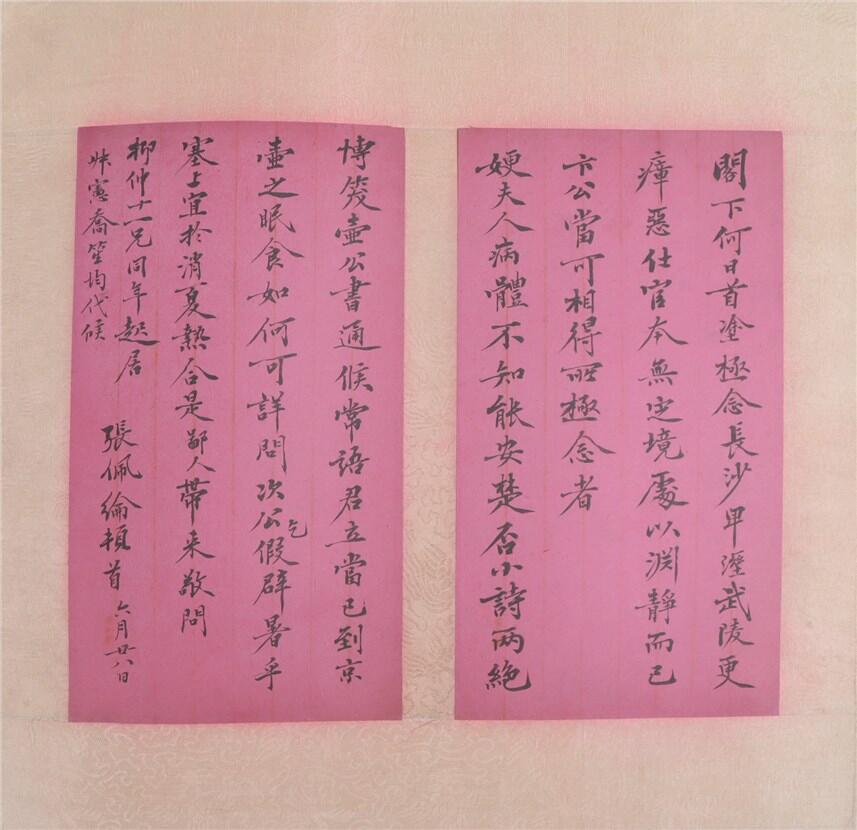 閣下何日首塗極念長沙卑溼武陵更
瘴惡仕宦本無定境處以淵靜而已
卞公當可相得所極念者
嫂夫人病體不知能安楚否小詩兩絶
博笑壺公書通候常語君立當已到京
壺之眠食如何可詳問次公乞假辟暑乎
塞上宜於消夏熱合是鄙人帶来敬問
柳仲十一兄同年起居
張佩綸頓首 六月廿八日
憲喬笙均代候